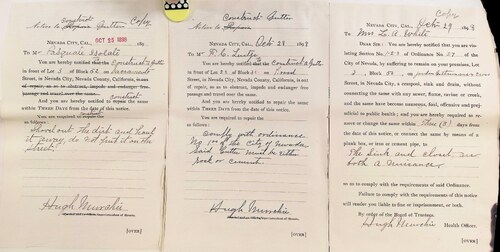 Construct
Notice to Repair Gutter Copy
NEVADA CITY, CAL., OCT 25 1898 189
To Mr
You are hereby notified that you Construct a gutter
in front of Lot 3 of Block 62 in Sacramento
Street, in Nevada City, Nevada County, California, is out
of repair, so as to obstruct, impede and endanger free
passage and travel over the same.
And you are hereby notified to construct
within THREE DAYS from the date of this notice.
You are required to
as follows:
Shovel out the dirt and haul
it away, do not put it on the
street.
Hugh Murchie
[OVER]
Construct Gutter
Notice to Repair
NEVADA CITY, CAL., Oct 29 1898
To Mr
You are hereby notified to Construct a gutter
in front of Lot of Block in Broad
Street, in Nevada City, Nevada County, California, is out
of repair, so as to obstruct, impede and endanger
free passage and travel over the same.
And you are hereby notified to repair the same
within THREE DAYS from the date of this notice.
You are required to repair the
as follows:
Comply with ordinance
No. of the City of Nevada
Said Gutter must be either
rock or cement.
Hugh Murchie
[OVER]
Copy
NEVADA CITY, CAL., Oct 29 1898
To Mrs L. A. White
DEAR SIR: You are hereby notified that you are violating Section No. of Ordinance No. of the
City of Nevada, by suffering to remain on your premises, Lot
3, Block 53, on
Street, in Nevada City, a cesspool, sink and drain, without
connecting the same with any sewer, flume, ravine or creek,
and the same have become nauseous, foul, offensive and prejudicial
to public health; and you are hereby required to remove
or change the same within Three (3) days from
the date of this notice, or connect the same by means of a
plank box, or iron or cement pipe, to
The Sink and closet are
both a nuisance
so as to comply with the requirements of said Ordinance.
Failure to comply with the requirements of this notice
will render you liable to fine or imprisonment, or both.
By order of the Board of Trustees.
Hugh Murchie Health Officer.
[OVER]